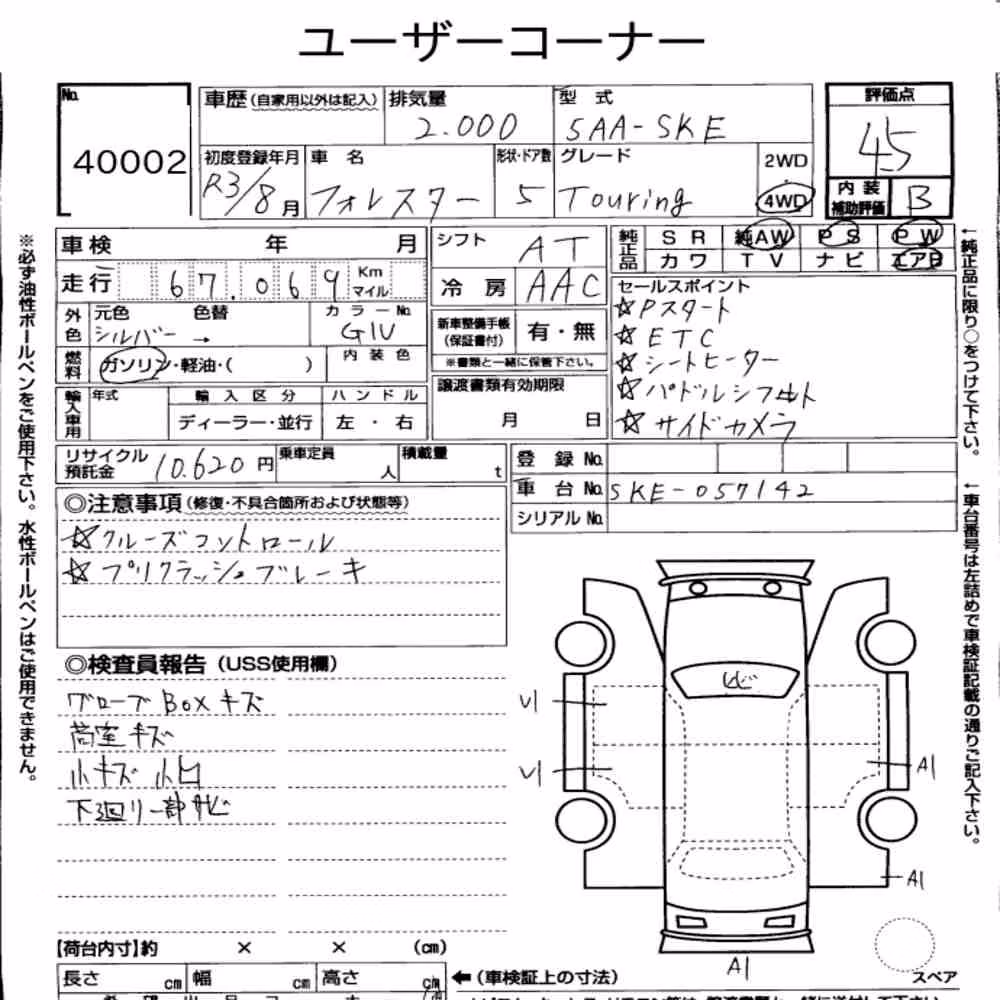 ユーザーコーナー
No. 40002
車歴(自家用以外は記入)
排気量 2.000
型式 5AA-SKE
評価点 45
初度登録年月 R3/8月
車名 フォレスター
形状・ドア数 5
グレード Touring
2WD
4WD
内装補助評価 B
車検 年 月
走行 67.069 Km マイル
外色 元色 シルバー → 色替
カラーNo. G1U
燃料 ガソリン・軽油・( )
内装色
輸入車用 年式
輸入区分 ディーラー・並行
ハンドル 左・右
シフト AT
冷房 AAC
新車整備手帳(保証書付) 有・無
※書類と一緒に保管下さい。
譲渡書類有効期限
月 日
純正品 SR 純AW PS PW
カワ TV ナビ エアB
セールスポイント
☆Pスタート
☆ETC
☆シートヒーター
☆パドルシフト
☆サイドカメラ
リサイクル預託金 10.620円
乗車定員 人
積載量 t
登録No.
車台No. SKE-057142
シリアルNo.
◎注意事項(修復・不具合箇所および状態等)
☆クルーズコントロール
☆プリクラッシュブレーキ
◎検査員報告(USS使用欄)
グローブBoxキズ
荷室キズ
小キズ 小凹
下廻り一部サビ
※必ず油性ボールペンをご使用下さい。水性ボールペンはご使用できません。
←純正品に限り○をつけて下さい。
←車台番号は左詰めで車検証記載の通りご記入下さい。
U1
U1
A1
A1
A1
スペア
【荷台内寸】約 × × (cm)
長さ cm 幅 cm 高さ cm
←(車検証上の寸法)